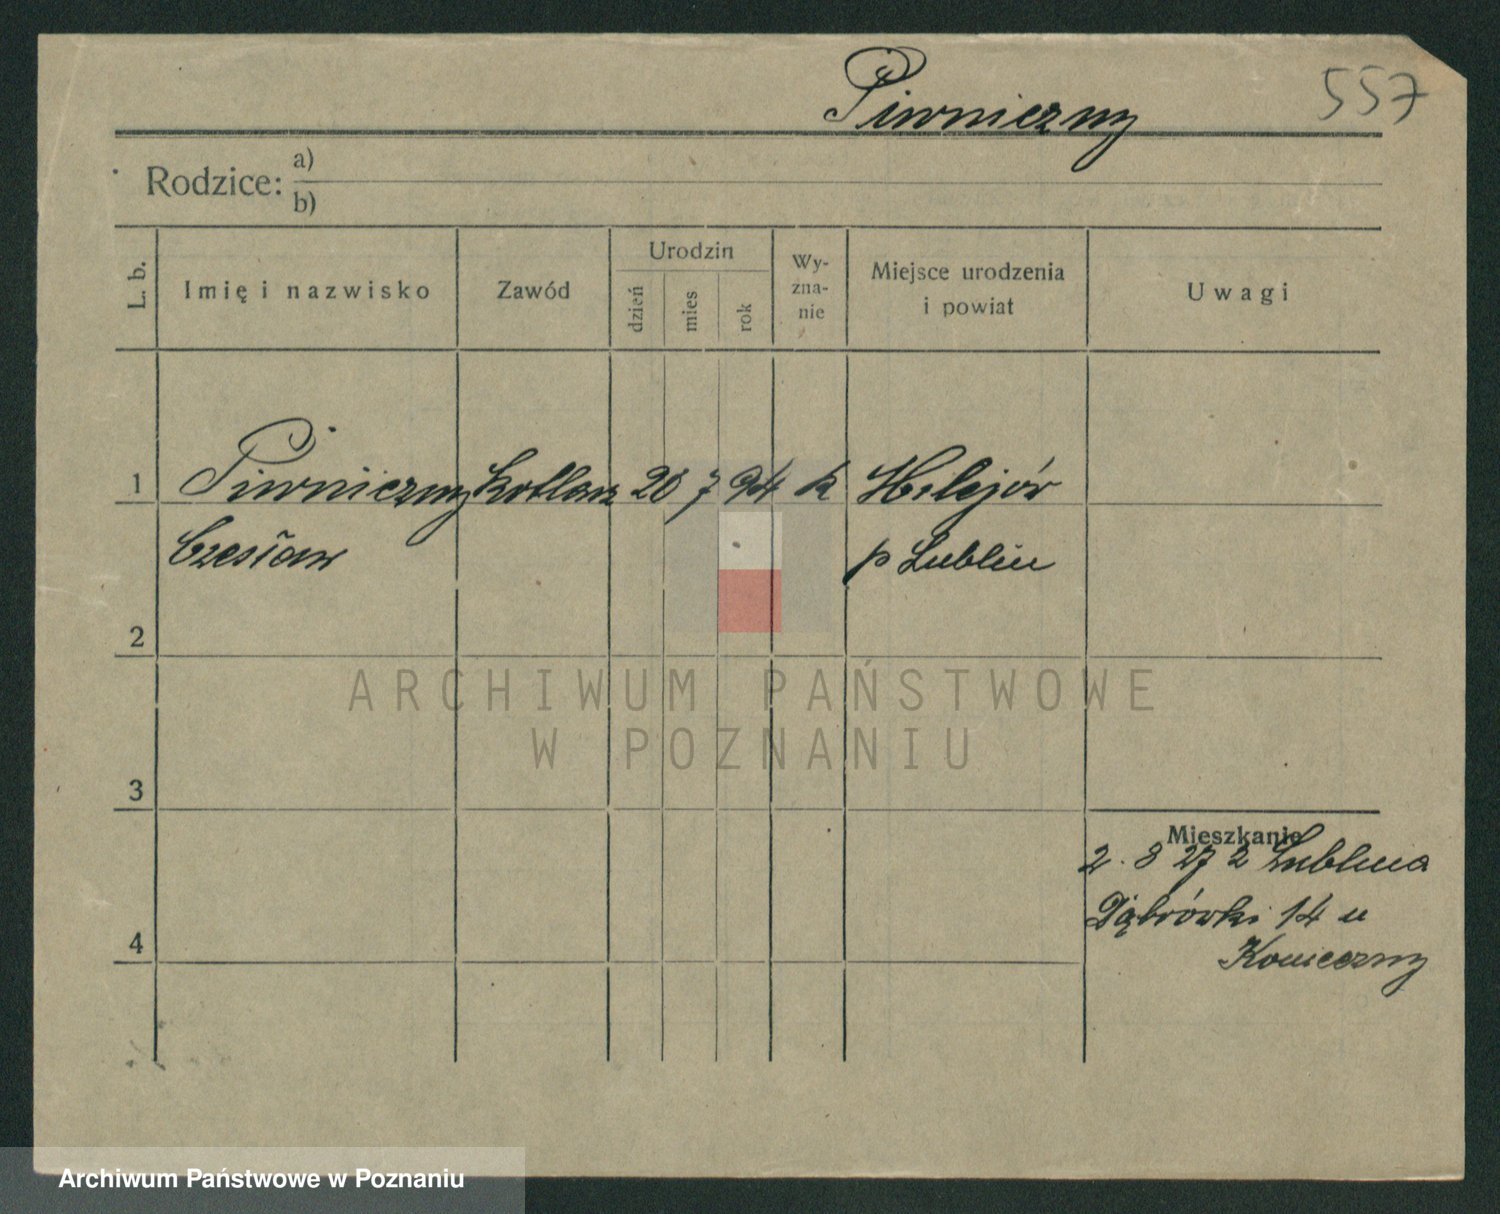 Piwniczny
557
Rodzice: a)
b)
L. b.
Imię i nazwisko
Zawód
Urodzin
dzień
mies
rok
Wy-
zna-
nie
Miejsce urodzenia
i powiat
Uwagi
1 Piwniczny Kotlarz 20 7 94 k
Czesław p Lublin
2
3
4
Mieszkanie
2. 8 27 z Lublina
Dąbrówki 14 u
Konieczny
ARCHIWUM PAŃSTWOWE
W POZNANIU
Archiwum Państwowe w Poznaniu